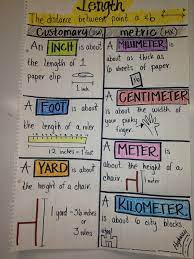 Length
The distance between point a & b
Customary
metric
An INCH is about
the length of 1
paper clip
A FOOT is
about
the length of a ruler
12 inches = 1 foot
A YARD is about
the height of a chair.
1 yard = 36 inches
or
3 inches
A MILLIMETER is
about as thick as
6 sheets of paper.
A CENTIMETER
is about the width of
your pinky
finger.
A METER is about
the height of a
chair.
1 meter
A KILOMETER is
about 6 city blocks